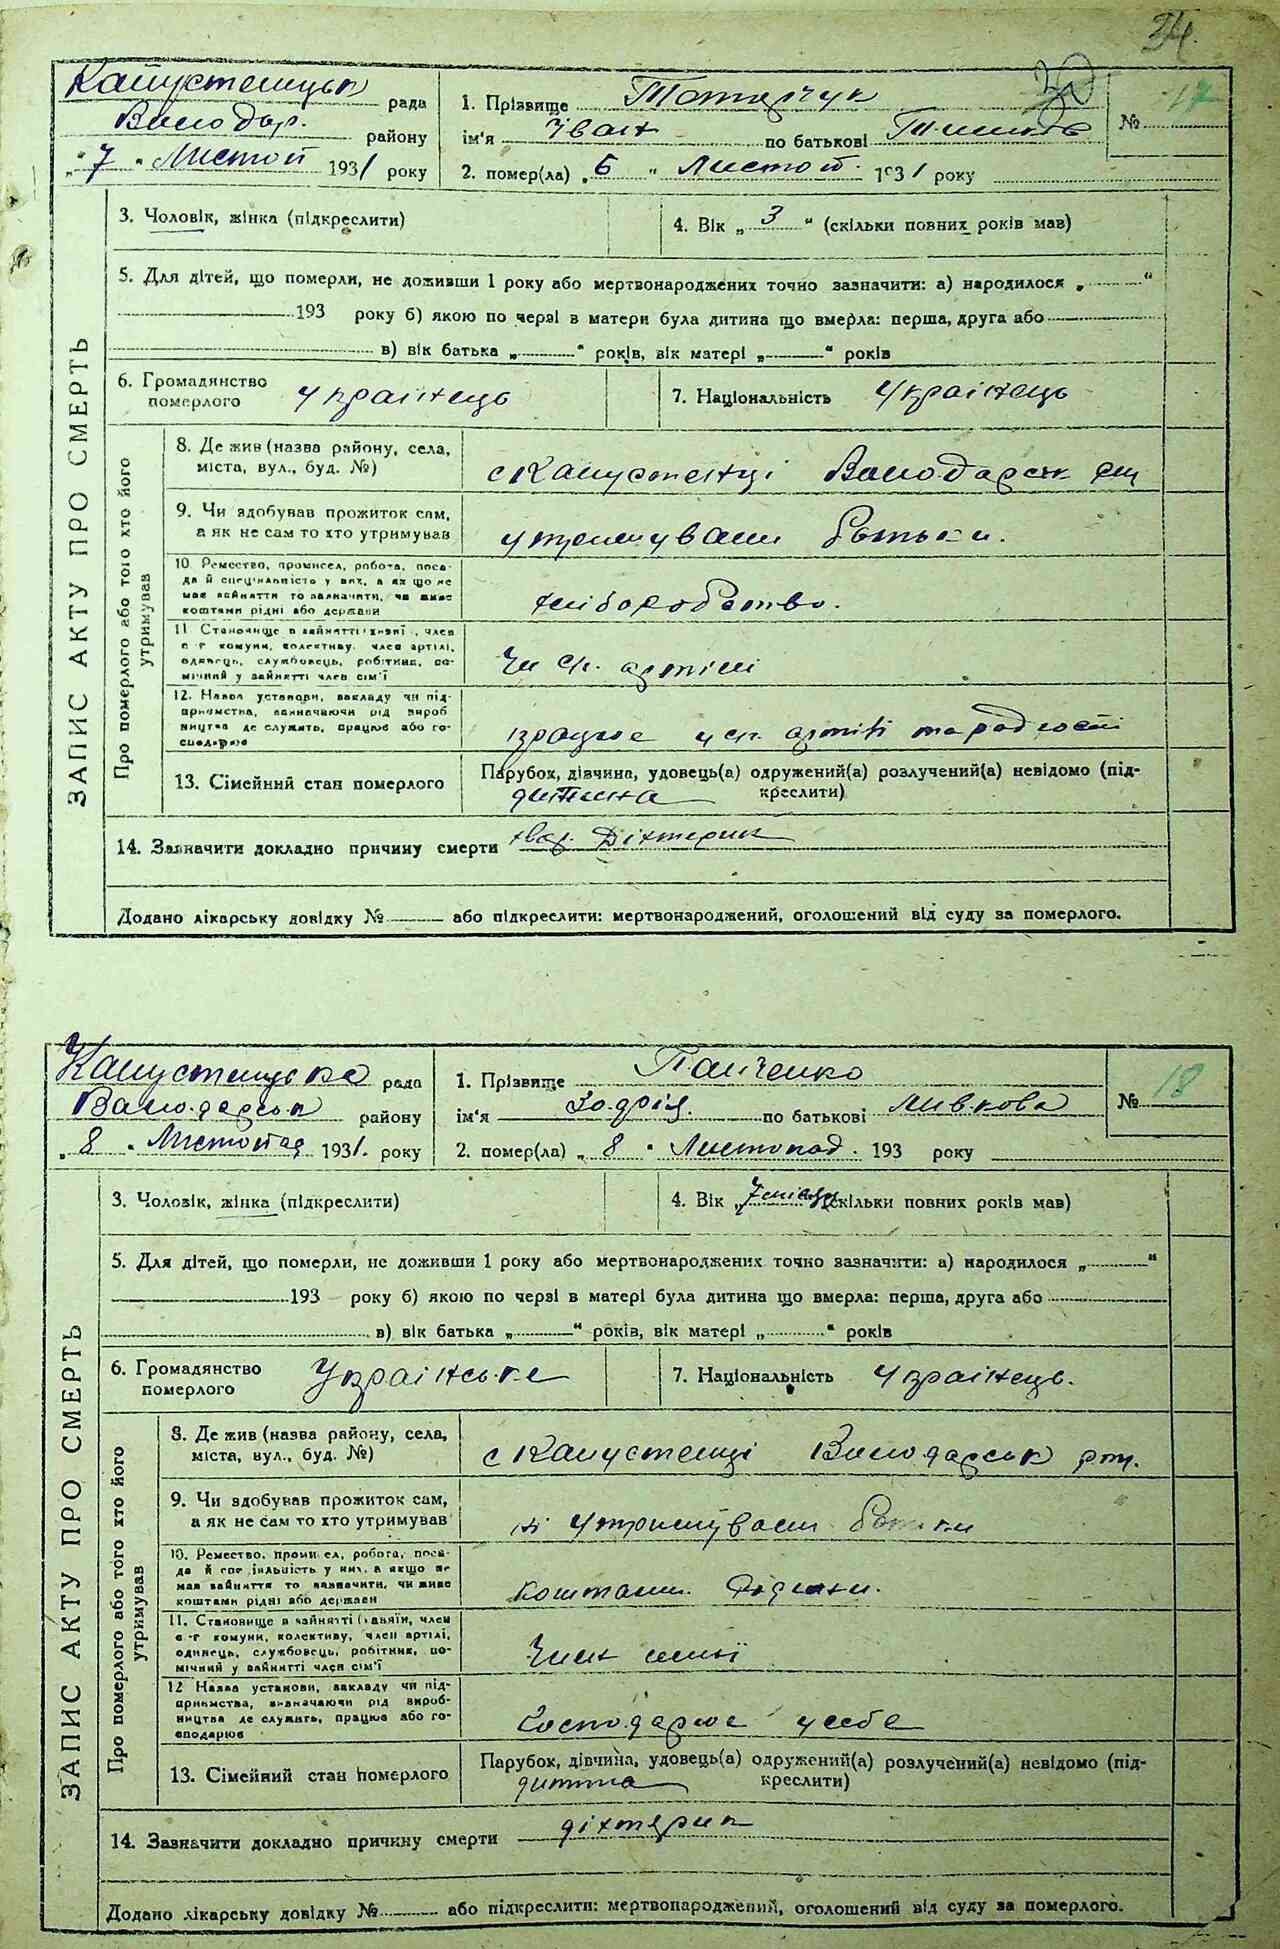 34.
Капустенецьк рада
Володар. району
"7" Листоп 1931 року
1. Прізвище Татарчук
ім'я Іван по батькові
2. помер(ла) "6" Листоп. 1931 року
№ 17
ЗАПИС АКТУ ПРО СМЕРТЬ
3. Чоловік, жінка (підкреслити)
4. Вік „ 3 “ (скільки повних років мав)
5. Для дітей, що померли, не доживши 1 року або мертвонароджених точно зазначити: а) народилося „ “
193 року б) якою по черзі в матери була дитина що вмерла: перша, друга або
в) вік батька „ “ років, вік матері „ “ років
6. Громадянство
померлого українець
7. Національність Українець
Про померлого або того хто його
утримував
8. Де жив (назва району, села,
міста, вул., буд. №)
с Капустенці Володарськ
9. Чи здобував прожиток сам,
а як не сам то хто утримував
утримували батьки.
10. Ремество, промисел, робота, поса-
да й спеціяльність у них, а як що не
мав зайняття то зазначити, чи живе
коштами рідні або держави
хліборобство.
11. Становище в зайнятті (хазяї, член
с-г комуни, колективу, член артілі,
одинець, службовець, робітник, по-
мічний у зайнятті член сім'ї
Чл сг. артілі
12. Назва установи, закладу чи під-
приємства, зазначаючи рід вироб
ництва де служить, працює або го-
сподарює
працює у сг. артілі
13. Сімейний стан померлого
Парубок, дівчина, удовець(а) одружений(а) розлучений(а) невідомо (під-
дитина креслити)
14. Зазначити докладно причину смерти хвор. Діхтерик
Додано лікарську довідку № або підкреслити: мертвонароджений, оголошений від суду за померлого.
Капустенецька рада
Володарськ району
"8" Листопад 1931. року
1. Прізвище Панченко
ім'я по батькові Ливкова
2. помер(ла) "8" Листопад. 193 року
№ 18
ЗАПИС АКТУ ПРО СМЕРТЬ
3. Чоловік, жінка (підкреслити)
4. Вік „ 7 місяц (скільки повних років мав)
5. Для дітей, що померли, не доживши 1 року або мертвонароджених точно зазначити: а) народилося „ “
193 року б) якою по черзі в матері була дитина що вмерла: перша, друга або
в) вік батька „ “ років, вік матері „ “ років
6. Громадянство
померлого Українське
7. Національність Українець.
Про померлого або того хто його
утримував
8. Де жив (назва району, села,
міста, вул., буд. №)
с Капустенці Володарськ
9. Чи здобував прожиток сам,
а як не сам то хто утримував
ні утримували батьки
10. Ремество, промисел, робота, поса-
да й спеціяльність у них, а якщо не
мав зайняття то зазначити, чи живе
коштами рідні або держави
коштами
11. Становище в зайнятті (хазяїн, член
с-г комуни, колективу, член артілі,
одинець, службовець, робітник, по-
мічний у зайнятті член сім'ї
Член сімї
12 Назва установи, закладу чи під-
приємства, визначаючи рід вироб-
ництва де служить, працює або го-
сподарює
Господарює у себе
13. Сімейний стан померлого
Парубок, дівчина, удовець(а) одружений(а) розлучений(а) невідомо (під-
дитина креслити)
14. Зазначити докладно причину смерти діхтерик
Додано лікарську довідку № або підкреслити: мертвонароджений, оголошений від суду за померлого.